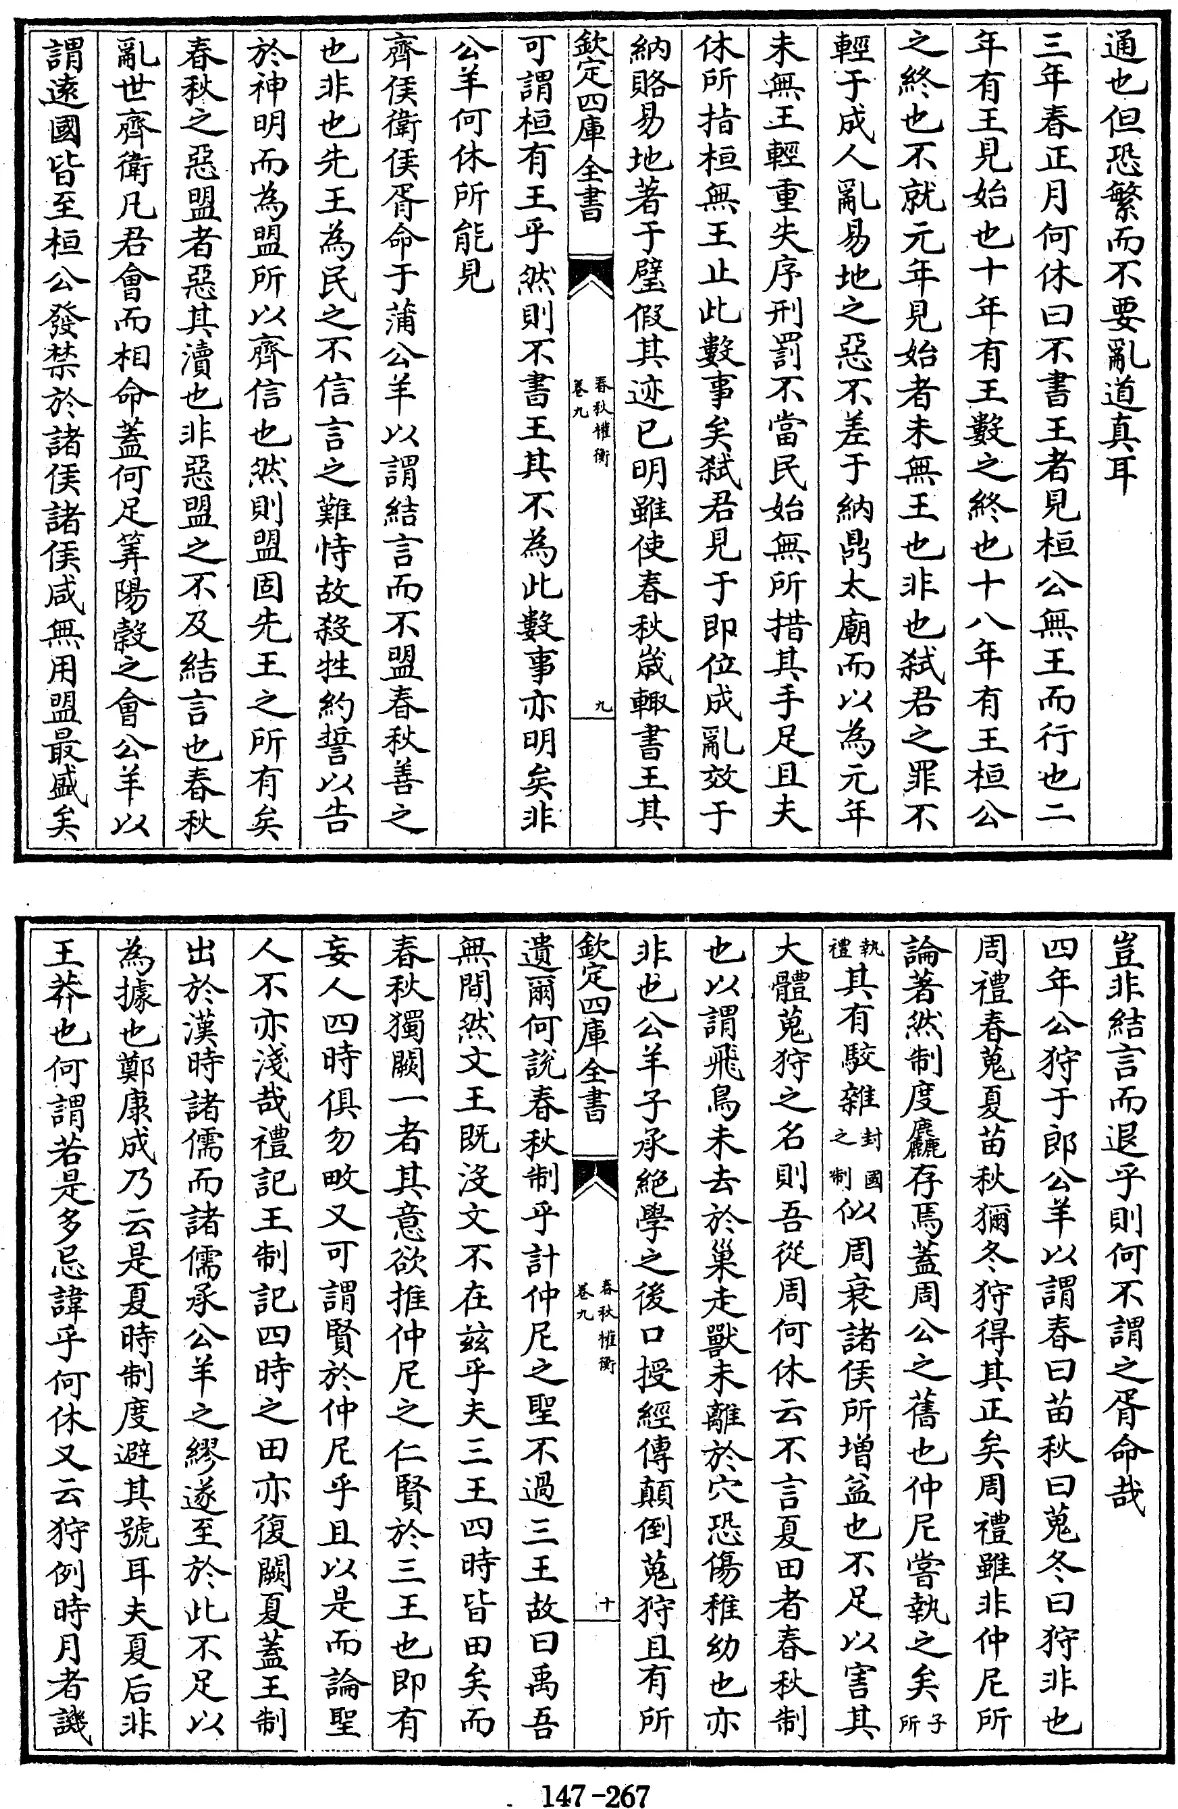 通也但恐繁而不要亂道真耳
三年春正月何休曰不書王者見桓公無王而行也二
年有王見始也十年有王數之終也十八年有王桓公
之終也不就元年見始者未無王也非也弑君之罪不
輕于成人亂易地之惡不差于納鼎太廟而以為元年
未無王輕重失序刑罰不當民始無所措其手足且夫
休所指桓無王止此數事矣弑君見于即位成亂效于
納賂易地著于璧假其迹已明雖使春秋嵗輙書王其
欽定四庫全書
春秋權衡
卷九
九
可謂桓有王乎然則不書王其不為此數事亦明矣非
公羊何休所能見
齊侯衛侯胥命于蒲公羊以謂結言而不盟春秋善之
也非也先王為民之不信言之難恃故殺牲約誓以告
於神明而為盟所以齊信也然則盟固先王之所有矣
春秋之惡盟者惡其瀆也非惡盟之不及結言也春秋
亂世齊衛凡君會而相命蓋何足筭陽穀之會公羊以
謂逺國皆至桓公發禁於諸侯諸侯咸無用盟最盛矣
豈非結言而退乎則何不謂之胥命哉
四年公狩于郎公羊以謂春曰苗秋曰蒐冬曰狩非也
周禮春蒐夏苗秋獮冬狩得其正矣周禮雖非仲尼所
論著然制度麤存焉蓋周公之舊也仲尼嘗執之矣子所
執禮其有駮雜封國之制似周衰諸侯所增益也不足以害其
大體蒐狩之名則吾從周何休云不言夏田者春秋制
也以謂飛鳥未去於巢走獸未離於穴恐傷稚幼也亦
非也公羊子承絶學之後口授經傳顛倒蒐狩且有所
欽定四庫全書
春秋權衡
卷九
十
遺爾何説春秋制乎計仲尼之聖不過三王故曰禹吾
無間然文王既沒文不在兹乎夫三王四時皆田矣而
春秋獨闕一者其意欲推仲尼之仁賢於三王也即有
妄人四時俱勿畋又可謂賢於仲尼乎且以是而論聖
人不亦淺哉禮記王制記四時之田亦復闕夏蓋王制
出於漢時諸儒而諸儒承公羊之繆遂至於此不足以
為據也鄭康成乃云是夏時制度避其號耳夫夏后非
王莽也何謂若是多忌諱乎何休又云狩例時月者譏
147-267